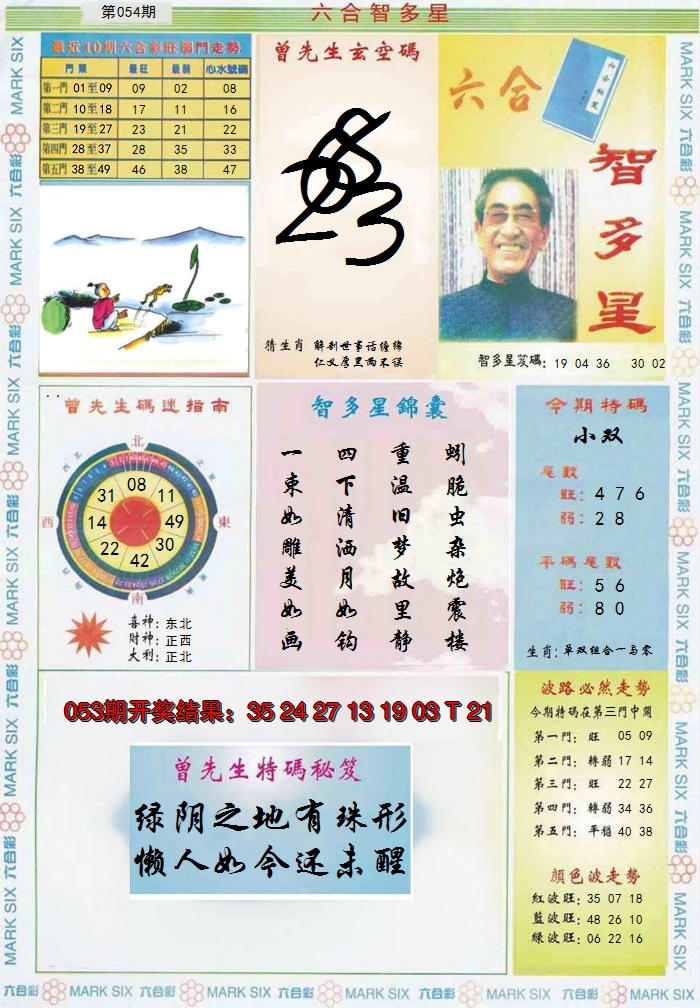 第054期
六合智多星
最近10期六合彩旺弱門走勢
門票 最旺 最弱 心水號碼
第一門 01至09 09 02 08
第二門 10至18 17 11 16
第三門 19至27 23 21 22
第四門 28至37 28 35 33
第五門 38至49 46 38 47
曾先生玄空碼
猜生肖 解剖世事话缠绵
仁义厚黑两不误
六合
六合秘笈
智多星
智多星笈碼：19 04 36 30 02
曾先生碼迷指南
北
东北
西北
西
東
南
08
31 11
14 49
22 30
42
喜神：东北
财神：正西
大利：正北
智多星錦囊
一束如雕美如画
四下清洒月如钩
重温旧梦故里静
蚓脆虫杂炮震楼
今期特碼
小双
尾數
旺：4 7 6
弱：2 8
平碼尾數
旺：5 6
弱：8 0
生肖：单双组合一与零
053期开奖结果：35 24 27 13 19 03 T 21
曾先生特碼秘笈
绿阴之地有珠形
懒人如今还未醒
波路必然走勢
今期特碼在第三門中開
第一門：旺 05 09
第二門：轉弱 17 14
第三門：旺 22 27
第四門：轉弱 34 36
第五門：平穩 40 38
顏色波走勢
紅波旺：35 07 18
藍波旺：48 26 10
绿波旺：06 22 16
六合彩 MARK SIX 六合彩 MARK SIX 六合彩 MARK SIX 六合彩 MARK SIX 六合彩 MARK SIX 六合彩